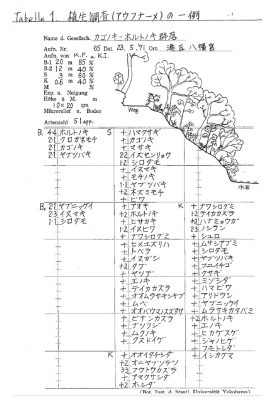 Tabelle 1. 植生調査(アウフナーメ)の一例
Name d. Gesellsch. カゴノキ-ホルトノキ群落
Aufn. Nr. 65 Dat. 23. 5. '71 Ort. 湊区 八幡宮
Aufn. von K.F. u. K.I.
B-1 20 m 85 %
B-2 12 m 40 %
S 3 m 60 %
K 0.6 m 40 %
M m %
Exp. u. Neigung
Höhe ü. M. m
10×20 qm
Mikrorelief u. Boden
Artenzahl 51 spp.
Weg
水面
B₁ 44 ホルトノキ
21 クロガネモチ
21 カゴノキ
21 ヤブツバキ
S + ハマクサギ
+ カゴノキ
+ マサキ
22 イヌビワ
12 シロダモ
+ イヌマキ
+ モチノキ
11 ヤブツバキ
+2 ネズミモチ
+ ビワ
B₂ 21 ヤブニッケイ
23 イヌマキ
11 シロダモ
+ アオキ
+2 ホルトノキ
+ ヒサカキ
+2 イヌビワ
+ ナワシログミ
+ ヒメユズリハ
+ トベラ
+ イヌガシ
+2 タブ
+ ヤツデ
+ エノキ
+ テイカカズラ
+ オオムラサキシキブ
+ ムベ
+ オオバウマノスズクサ
+ ビナンカズラ
+ ナツフジ
+ ムクノキ
+ クスドイゲ
K + ナワシログミ
12 テイカカズラ
+2 ハナミョウガ
23 ノシラン
+ シュロ
+ ムサシアブミ
+ シロダモ
+ ヤブツバキ
+ タブ
+ フユイチゴ
+ クサギ
+ ミゾシダ
+ ハマビワ
+ アリドウシ
+ ヤブニッケイ
+ ムラサキカタバミ
+2 ホルトノキ
+ エノキ
+ ヒカゲスゲ
+ ジャノヒゲ
+ フモトシダ
+ イシカグマ
K + オオイタチシダ
+2 オニヤブソテツ
33 フウトウカズラ
+ アマクサシダ
+2 ホシダ
(Bot. Inst. d. Staatl. Universität Yokohama)